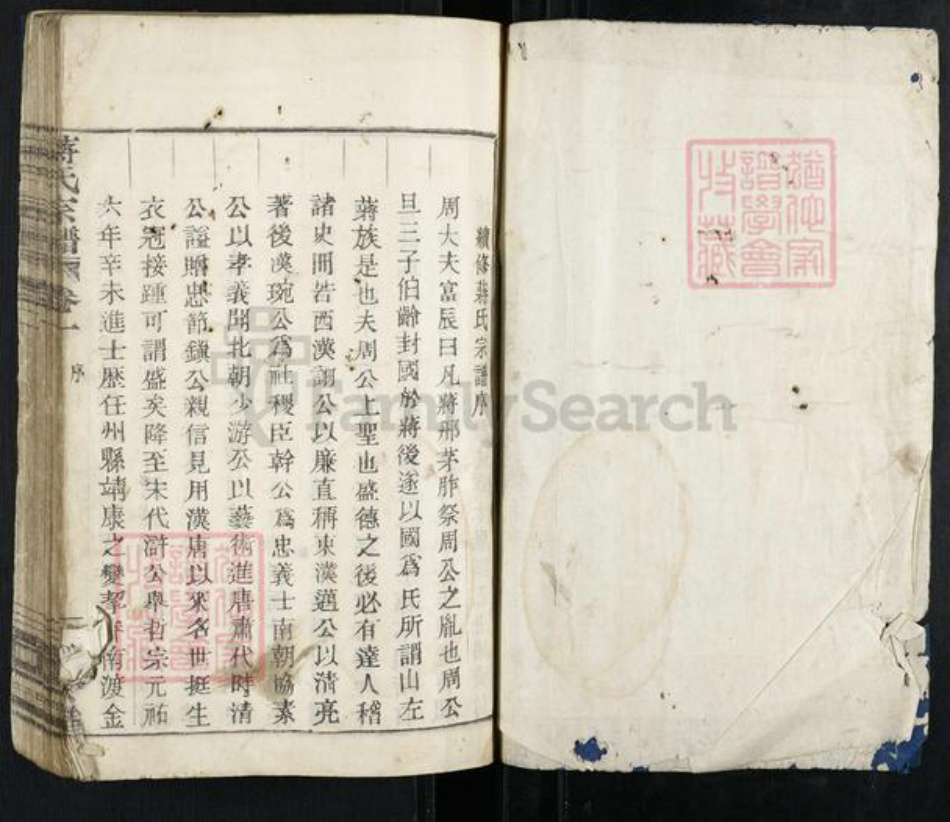 續修蔣氏宗譜序
周大夫富辰曰凡蔣邢茅胙祭周公之胤也周公
旦三子伯齡封國於蔣後遂以國爲氏所謂山左
蔣族是也夫周公上聖也盛德之後必有達人稽
諸史冊若西漢詡公以廉直稱東漢邁公以清亮
著後漢琬公爲社稷臣幹公爲忠義士南朝恊素
公以孝義聞北朝少游公以藝術進唐肅代時清
公謚贈忠節鎭公親信見用漢唐以來名世挺生
衣冠接踵可謂盛矣降至宋代湑公舉哲宗元祐
六年辛未進士歷任州縣靖康之變挈 南渡金
蔣氏宗譜 卷一
序
FamilySearch
譜學會
收藏